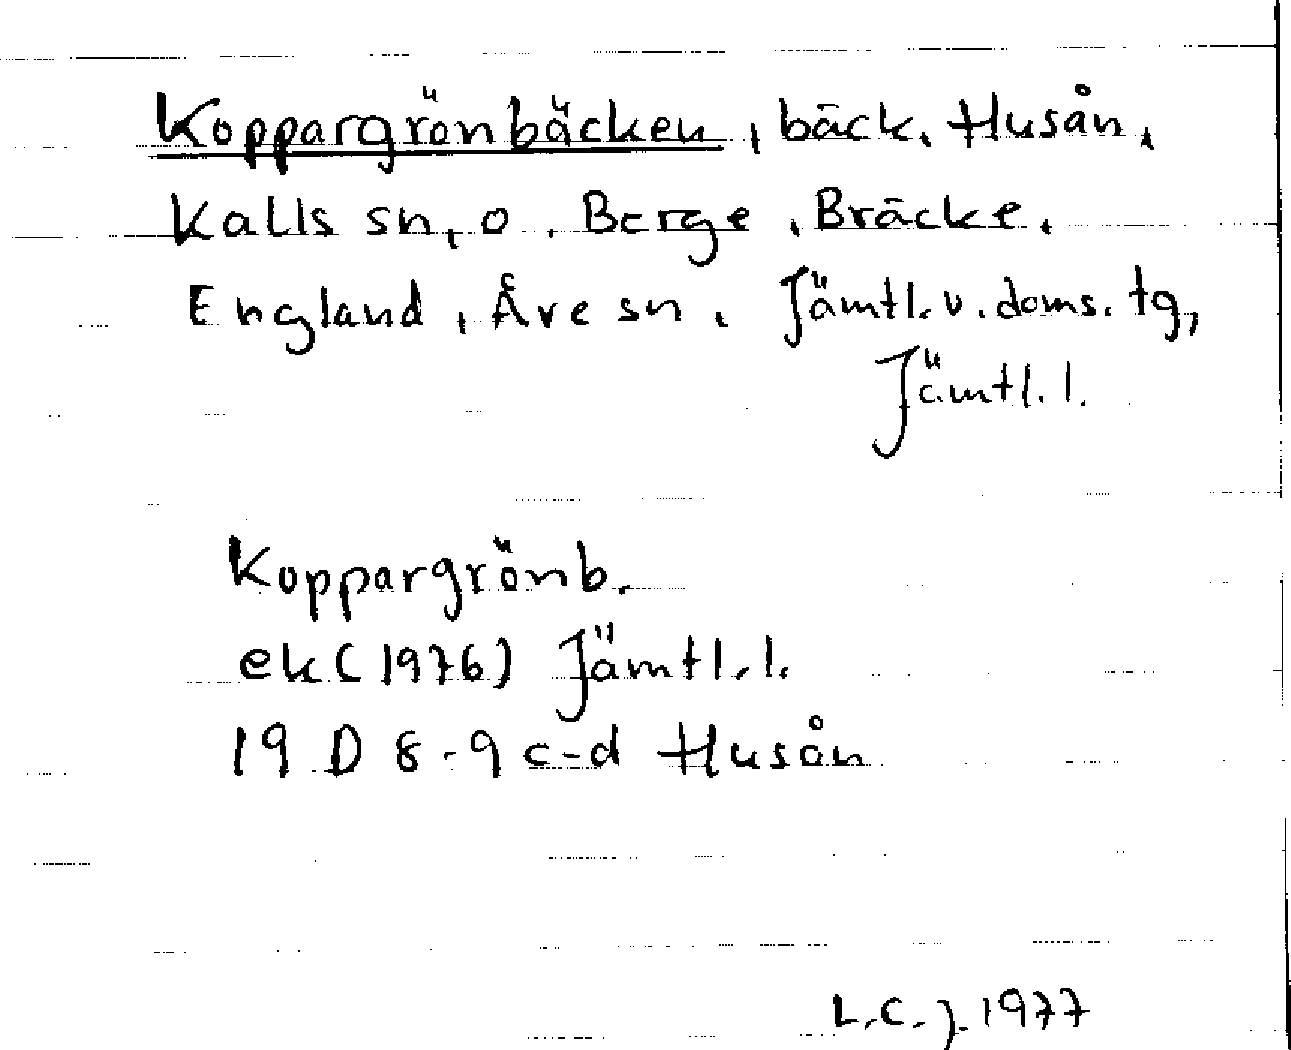 Koppargrönbäcken, bäck, Husån,
Kalls sn, o. Berge, Bräcke,
England, Åre sn, Jämtl. v. doms. tg,
Jämtl. l.
Koppargrönb.
ek (1976) Jämtl. l.
19 D 8-9 c-d Husån
L.C.J. 1977